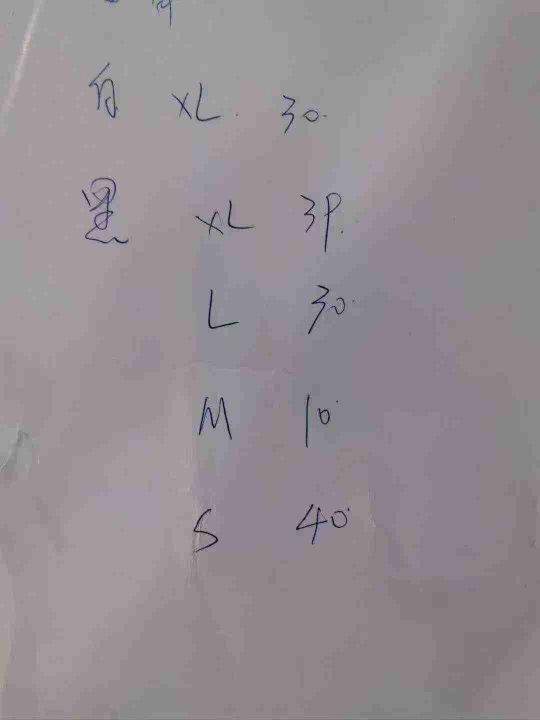 白 XL. 30.
黑 XL 39.
L 30.
M 10
S 40